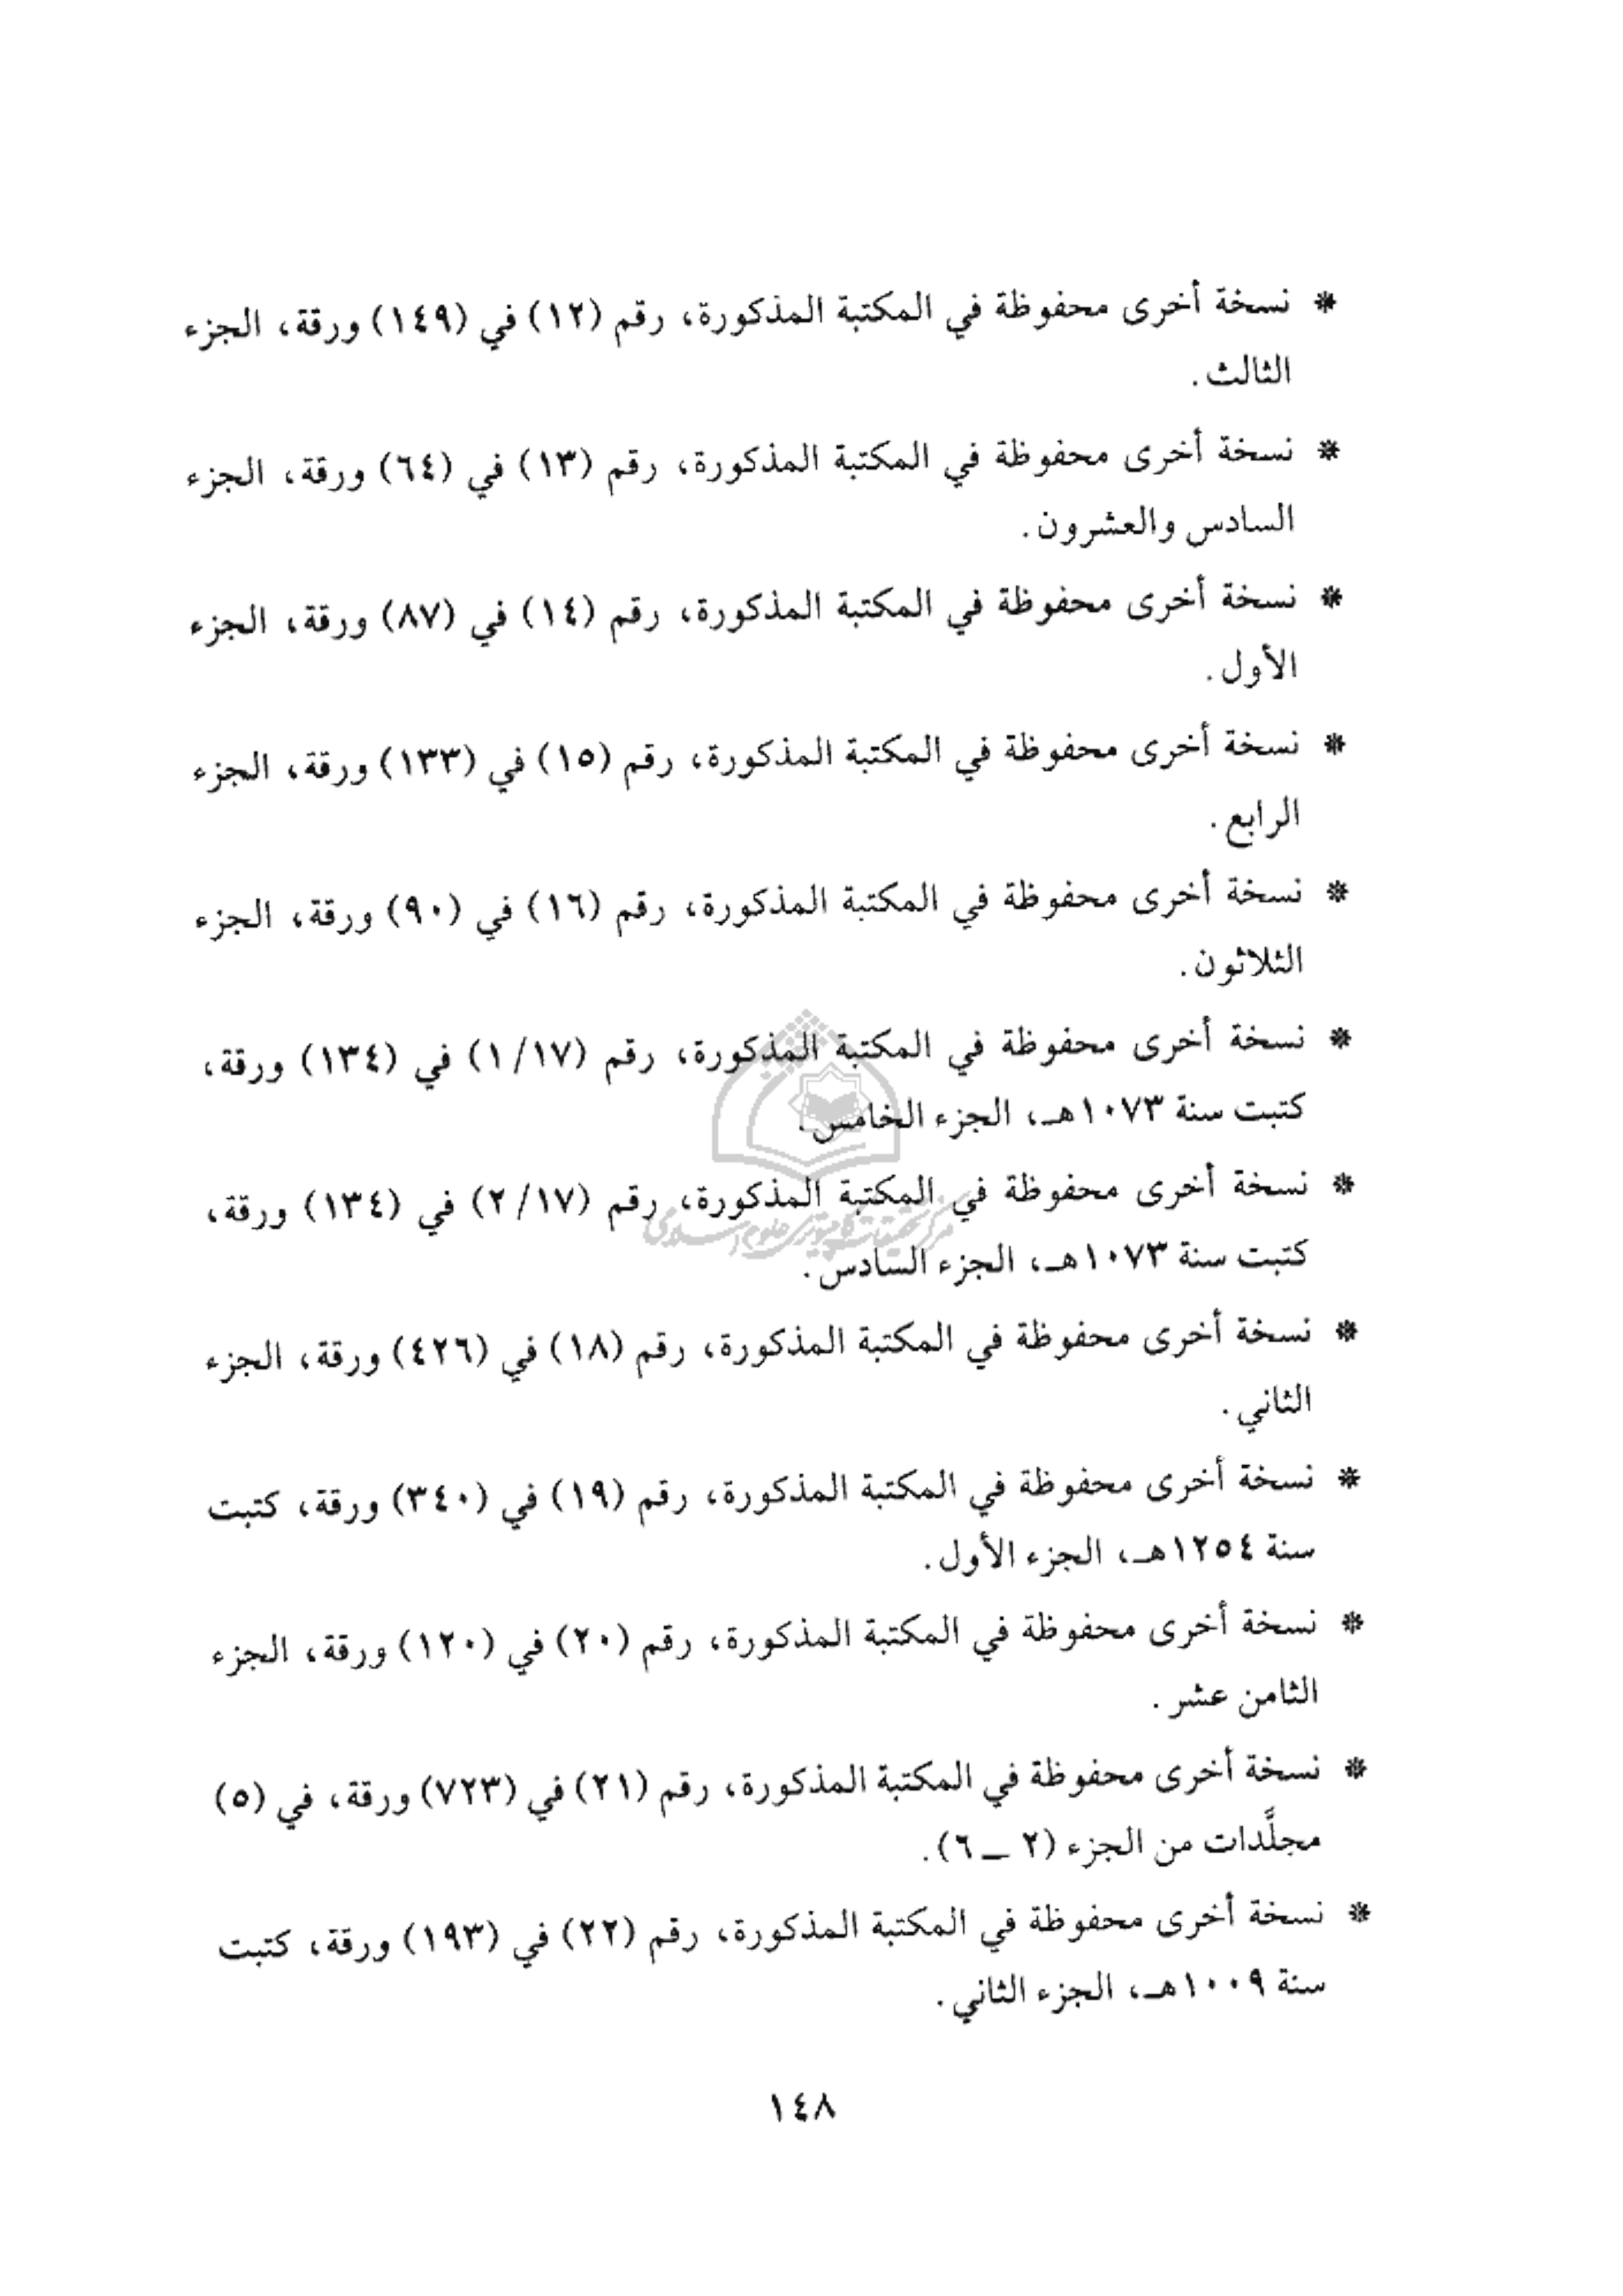 * نسخة أخرى محفوظة في المكتبة المذكورة، رقم (١٢) في (١٤٩) ورقة، الجزء
الثالث.
* نسخة أخرى محفوظة في المكتبة المذكورة، رقم (١٣) في (٦٤) ورقة، الجزء
السادس والعشرون.
* نسخة أخرى محفوظة في المكتبة المذكورة، رقم (١٤) في (٨٧) ورقة، الجزء
الأول.
* نسخة أخرى محفوظة في المكتبة المذكورة، رقم (١٥) في (١٣٣) ورقة، الجزء
الرابع.
* نسخة أخرى محفوظة في المكتبة المذكورة، رقم (١٦) في (٩٠) ورقة، الجزء
الثلاثون.
* نسخة أخرى محفوظة في المكتبة المذكورة، رقم (١/١٧) في (١٣٤) ورقة،
كتبت سنة ١٠٧٣هـ، الجزء الخامس.
* نسخة أخرى محفوظة في المكتبة المذكورة، رقم (٢/١٧) في (١٣٤) ورقة،
مرکز تحقیقات کامپیوتری علوم اسلامی
كتبت سنة ١٠٧٣هـ، الجزء السادس.
* نسخة أخرى محفوظة في المكتبة المذكورة، رقم (١٨) في (٤٢٦) ورقة، الجزء
الثاني.
* نسخة أخرى محفوظة في المكتبة المذكورة، رقم (١٩) في (٣٤٠) ورقة، كتبت
سنة ١٢٥٤هـ، الجزء الأول.
* نسخة أخرى محفوظة في المكتبة المذكورة، رقم (٢٠) في (١٢٠) ورقة، الجزء
الثامن عشر.
* نسخة أخرى محفوظة في المكتبة المذكورة، رقم (٢١) في (٧٢٣) ورقة، في (٥)
مجلَّدات من الجزء (٢ ــ ٦).
* نسخة أخرى محفوظة في المكتبة المذكورة، رقم (٢٢) في (١٩٣) ورقة، كتبت
سنة ١٠٠٩هـ، الجزء الثاني.
١٤٨